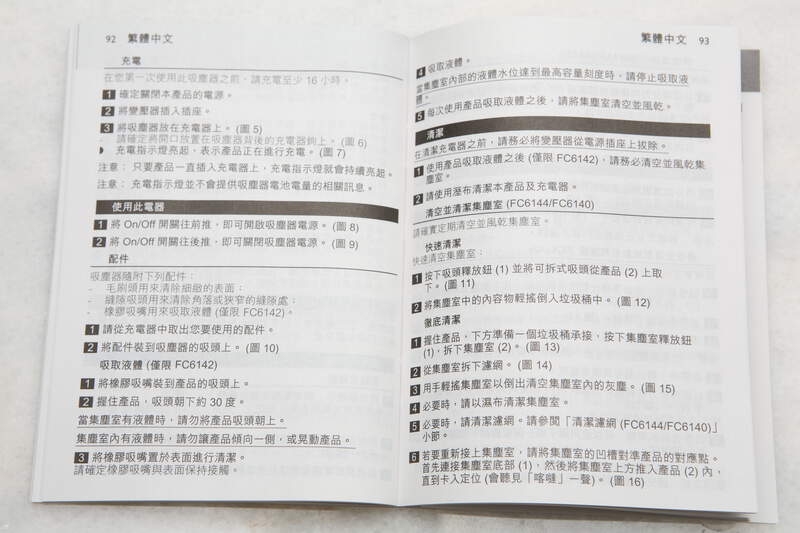 92 繁體中文
充電
在您第一次使用此吸塵器之前，請充電至少 16 小時。
1 確定關閉本產品的電源。
2 將變壓器插入插座。
3 將吸塵器放在充電器上。 (圖 5)
請確定將開口放置在吸塵器背後的充電器鉤上。 (圖 6)
充電指示燈亮起，表示產品正在進行充電。 (圖 7)
注意： 只要產品一直插入充電器上，充電指示燈就會持續亮起。
注意： 充電指示燈並不會提供吸塵器電池電量的相關訊息。
使用此電器
1 將 On/Off 開關往前推，即可開啟吸塵器電源。 (圖 8)
2 將 On/Off 開關往後推，即可關閉吸塵器電源。 (圖 9)
配件
吸塵器隨附下列配件：
- 毛刷頭用來清除細緻的表面；
- 縫隙吸頭用來清除角落或狹窄的縫隙處；
- 橡膠吸嘴用來吸取液體 (僅限 FC6142)。
1 請從充電器中取出您要使用的配件。
2 將配件裝到吸塵器的吸頭上。 (圖 10)
吸取液體 (僅限 FC6142)
1 將橡膠吸嘴裝到產品的吸頭上。
2 握住產品，吸頭朝下約 30 度。
當集塵室有液體時，請勿將產品吸頭朝上。
集塵室內有液體時，請勿讓產品傾向一側，或晃動產品。
3 將橡膠吸嘴置於表面進行清潔。
請確定橡膠吸嘴與表面保持接觸。
繁體中文 93
4 吸取液體。
當集塵室內部的液體水位達到最高容量刻度時，請停止吸取液
體。
5 每次使用產品吸取液體之後，請將集塵室清空並風乾。
清潔
在清潔充電器之前，請務必將變壓器從電源插座上拔除。
1 使用產品吸取液體之後 (僅限 FC6142)，請務必清空並風乾集
塵室。
2 請使用溼布清潔本產品及充電器。
清空並清潔集塵室 (FC6144/FC6140)
請確實定期清空並風乾集塵室。
快速清潔
快速清空集塵室：
1 按下吸頭釋放鈕 (1) 並將可拆式吸頭從產品 (2) 上取
下。 (圖 11)
2 將集塵室中的內容物輕搖倒入垃圾桶中。 (圖 12)
徹底清潔
1 握住產品，下方準備一個垃圾桶承接，按下集塵室釋放鈕
(1)，拆下集塵室 (2)。 (圖 13)
2 從集塵室拆下濾網。 (圖 14)
3 用手輕搖集塵室以倒出清空集塵室內的灰塵。 (圖 15)
4 必要時，請以濕布清潔集塵室。
5 必要時，請清潔濾網。請參閱「清潔濾網 (FC6144/FC6140)」
小節。
6 若要重新接上集塵室，請將集塵室的凹槽對準產品的對應點。
首先連接集塵室底部 (1)，然後將集塵室上方推入產品 (2) 內，
直到卡入定位 (會聽見「喀噠」一聲)。 (圖 16)